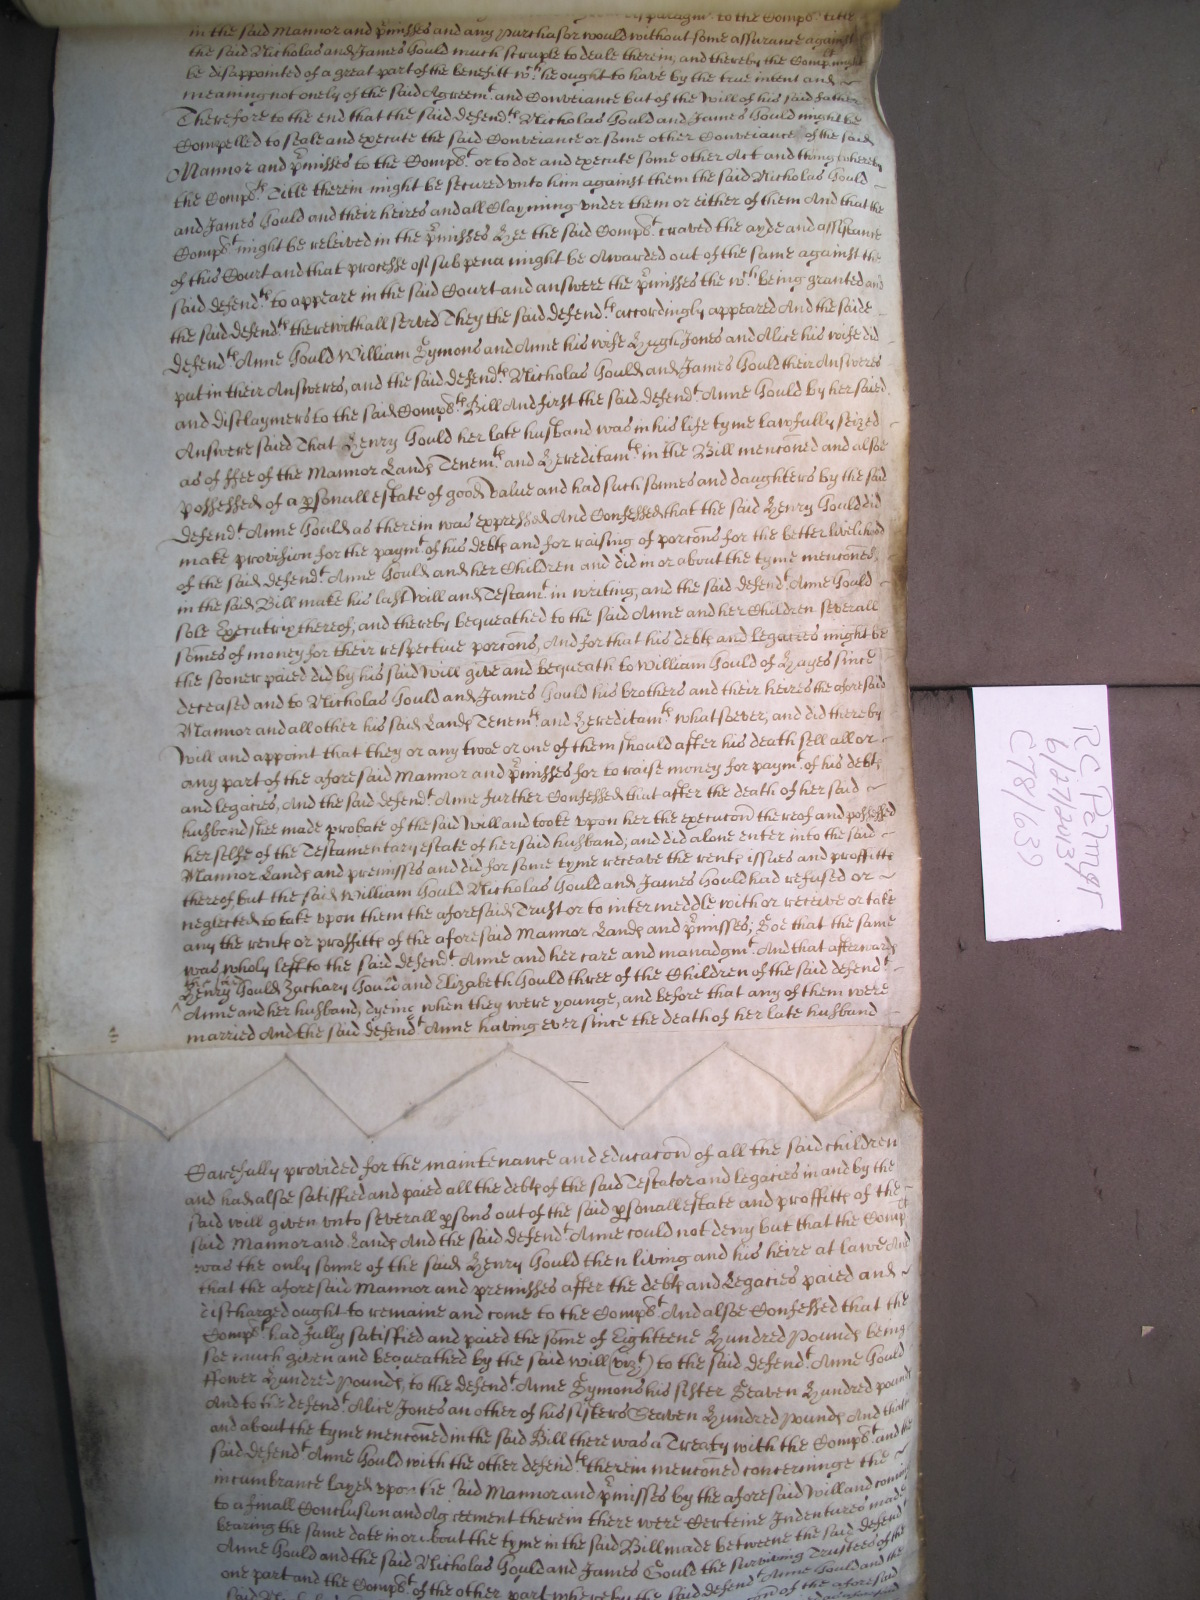 to the Compl.ts title
in the said Mannor and p̃misses and any purchasor would without some assurance against
the said Nicholas and James Gould much scruple to deale therein, and thereby the Comp.lt might
be disappointed of a great part of the benefitt w.ch he ought to have by the true intent and
meaning not onely of the said Agreem.t and Conveiance but of the Will of his said father
Therefore to the end that the said defend.ts Nicholas Gould and James Gould might be
Compelled to seale and execute the said Conveiance or some other Conveiance of the said
Mannor and p̃misses to the Comp.lt or to doe and execute some other Act and thing whereby
the Comp.lts Title therein might be secured vnto him against them the said Nicholas Gould
and James Gould and their heires and all Clayming vnder them or either of them And that the
Comp.lt might be releived in the p̃misses Hee the said Comp.lt craved the ayde and assistance
of this Court and that processe of subpena might be Awarded out of the same against the
said defend.ts to appeare in the said Court and answere the p̃misses the w.ch being granted and
the said defend.ts therewithall served They the said defend.ts accordingly appeared And the saide
defend.ts Anne Gould William Symons and Anne his wife Hugh Jones and Alice his wife did
put in their Answeres, and the said defend.ts Nicholas Gould and James Gould their Answeres
and disclaymers to the said Comp.lts Bill And first the said defend.t Anne Gould by her said
Answere saied That Henry Gould her late husband was in his life tyme lawfully seized
as of ffee of the Mannor Lands Tenem.ts and Hereditam.ts in the Bill mencõned and alsoe
possessed of a p̱sonall estate of good value and had such sonnes and daughters by the said
defend.t Anne Gould as therein was expressed And Confessed that the said Henry Gould did
make provision for the paym.t of his debts and for raising of porcõns for the better livelihood
of the said defend.t Anne Gould and her Children and did in or about the tyme mencõned
in the said Bill make his last Will and Testam.t in writing, and the said defend.t Anne Gould
sole Executrix thereof, and thereby bequeathed to the said Anne and her Children severall
som̃es of money for their respective porcõns, And for that his debts and legacies might be
the sooner paied did by his said Will give and bequeath to William Gould of Hayes since
deceased and to Nicholas Gould and James Gould his brothers and their heires the aforesaid
Mannor and all other his said Lands Tenem.ts and Hereditam.ts whatsoever, and did thereby
Will and appoint that they or any twoe or one of them should after his death sell all or
any part of the aforesaid Mannor and p̃misses for to raise money for paym.t of his debts
and legacies, And the said defend.t Anne further Confessed that after the death of her said
husband shee made probate of the said Will and tooke vpon her the execucõn thereof and possessed
her selfe of the Testamentary estate of her said husband, and did alone enter into the said
Mannor Lands and premisses and did for some tyme receave the rents issues and proffitts
thereof but the said William Gould Nicholas Gould and James Gould had refused or
neglected to take vpon them the aforesaid Trust or to intermeddle with or receive or take
any the rents or proffitts of the aforesaid Mannor Lands and p̃misses; Soe that the same
was wholy left to the said defend.t Anne and her care and manadgm.t And that afterwards
Henry Gould Zachary Gould and Elizabeth Gould three of the Children of the said defend.t
Anne and her husband, dyeing when they were younge, and before that any of them were
married And the said defend.t Anne having ever since the death of her late husband
Carefully provided for the maintenance and educacõn of all the said children
and had alsoe satisfied and paied all the debts of the said Testator and legacies in and by the
said will given vnto severall p̱sons out of the said p̱sonall estate and proffitts of the
said Mannor and Lands And the said defend.t Anne could not deny but that the Comp.lt
was the only sonne of the said Henry Gould then living and his heire at lawe And
that the aforesaid Mannor and premisses after the debts and Legacies paied and
discharged ought to remaine and come to the Comp.lt And alsoe Confessed that the
Comp.lt had fully satisfied and paied the som̃e of Eighteene Hundred Pounds being
soe much given and bequeathed by the said will (viz.t) to the said defend.t Anne Gould
ffower Hundred Pounds, to the defend.t Anne Symons his sister Seaven Hundred pounds
And to the defend.t Alice Jones an other of his sisters Seaven Hundred Pounds And that
and about the tyme mencõned in the said Bill there was a Treaty with the Comp.lt and the
said defend.t Anne Gould with the other defend.ts therein mencõned concerninge the
incumbrance layed vpon the said Mannor and p̃misses by the aforesaid Will and coming
to a finall Conclusion and Agreement therein there were Certeine Indentures made
bearing the same date in or about the tyme in the said Bill made betweene the said defend.t
Anne Gould and the said Nicholas Gould and James Gould the surviving Trustees of the
one part and the Comp.lt of the other part whereby the said defend.t Anne Gould and the
said of the aforesaid
RC Palmer
6/27/2013
C78/639